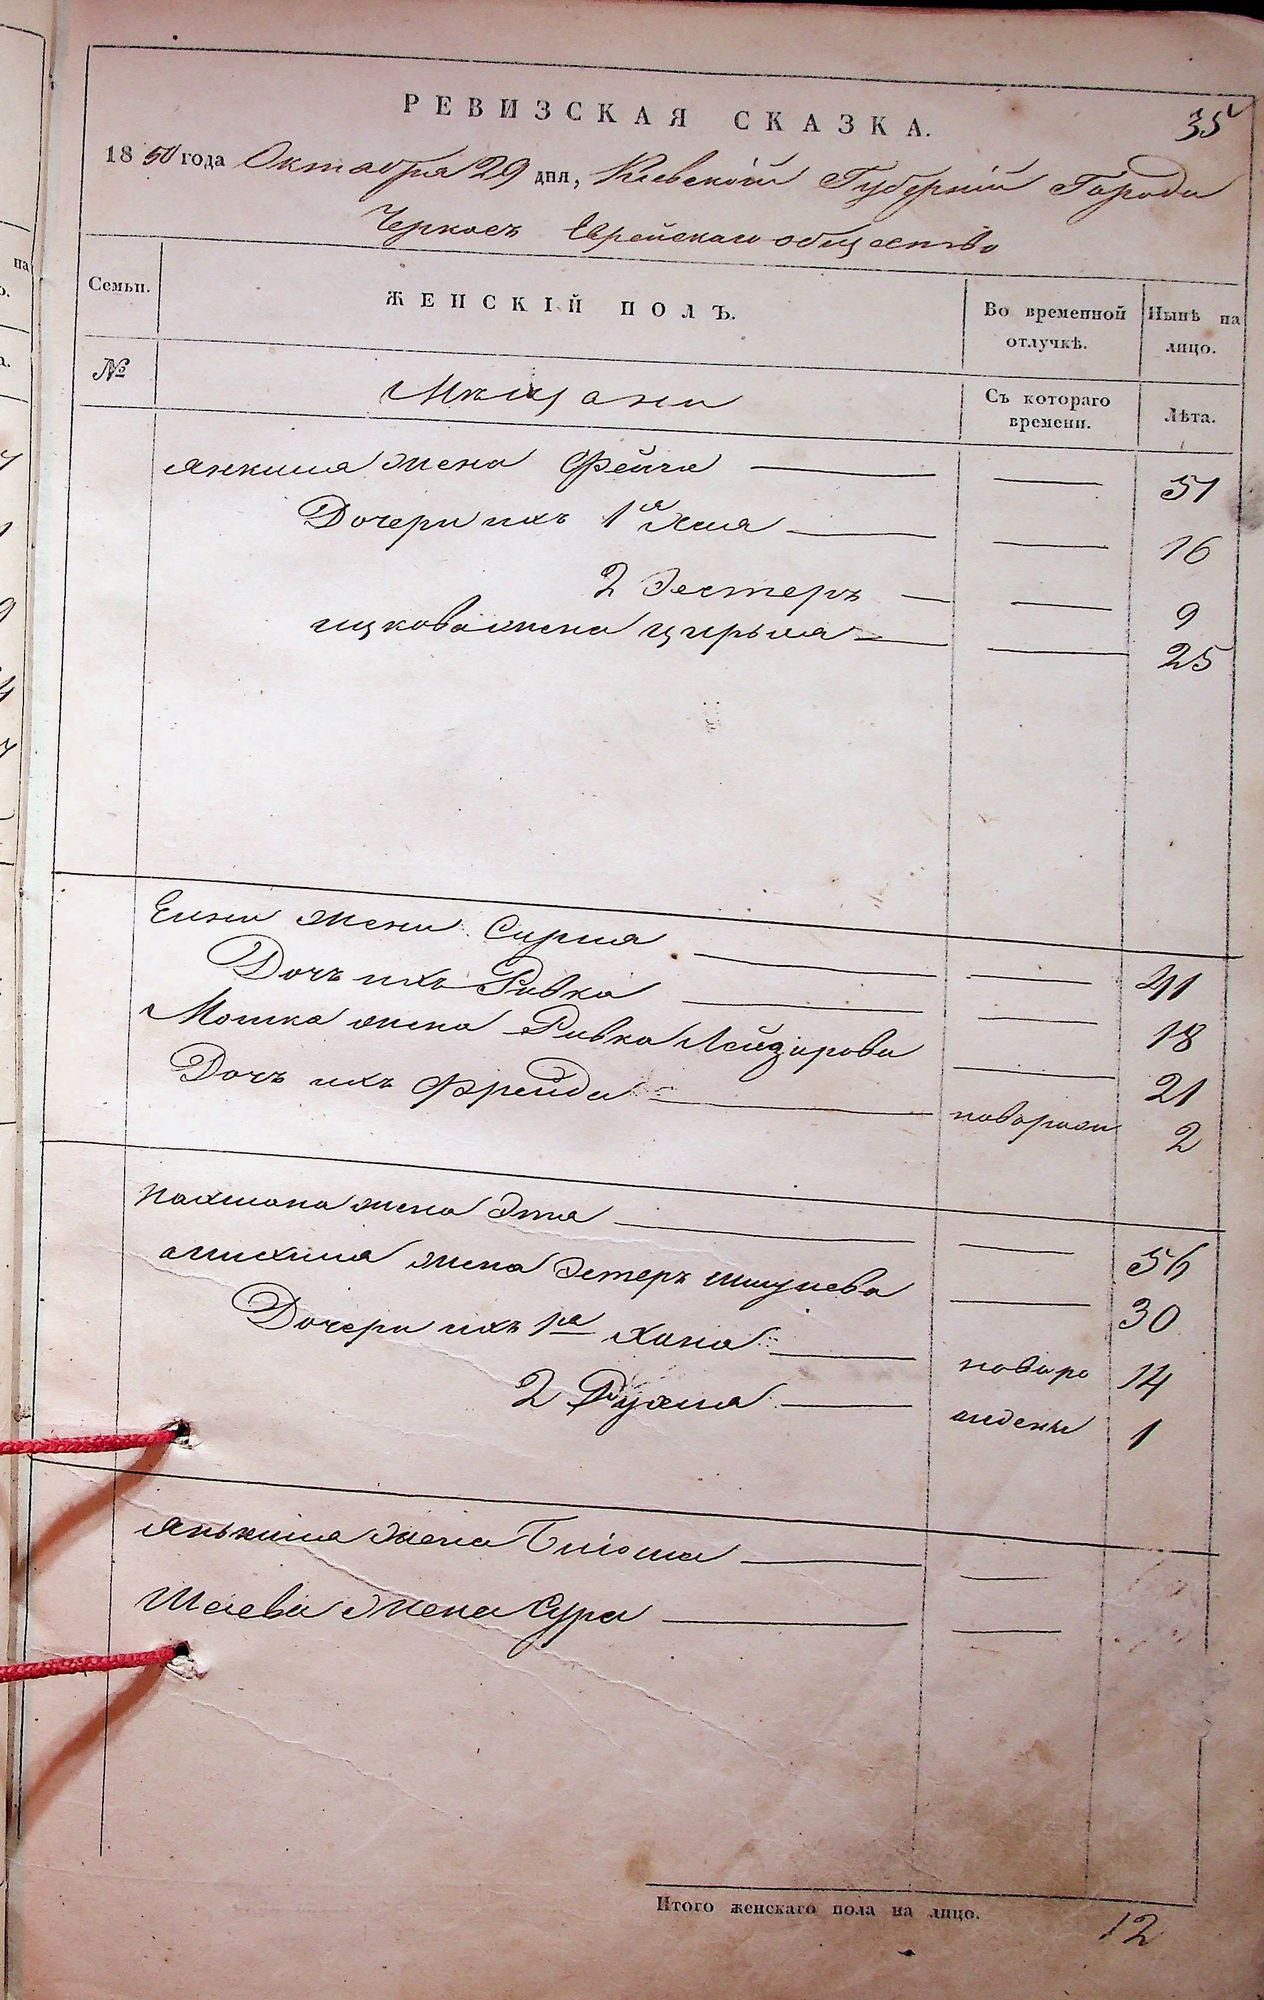 РЕВИЗСКАЯ СКАЗКА.
35
1850 года Октабря 29 дня, Киевской Губерніи Города
Черкасъ Еврейскаго общество
Семьи. ЖЕНСКІЙ ПОЛЪ. Во временной отлучкѣ. Нынѣ на лицо.
№ Мещани Съ котораго времени. Лѣта.
Янкиля жена Фейга — — 51
Дочери ихъ 1я Хая — — 16
2 Эестеръ — — 9
ицкова жена цирьля — — 25
жена Сирля — — 41
Дочъ ихъ Ривка — — 18
Мошка жена Ривка Лейзарова — 21
Дочъ ихъ Фрейда — 2
Нахмана жена Эта — — 56
жена Эстеръ — 30
Дочери ихъ 1я Хана — 14
2 Рухля — 1
Янькиля жена — —
Шаева жена Сура — —
Итого женскаго пола на лицо. 12